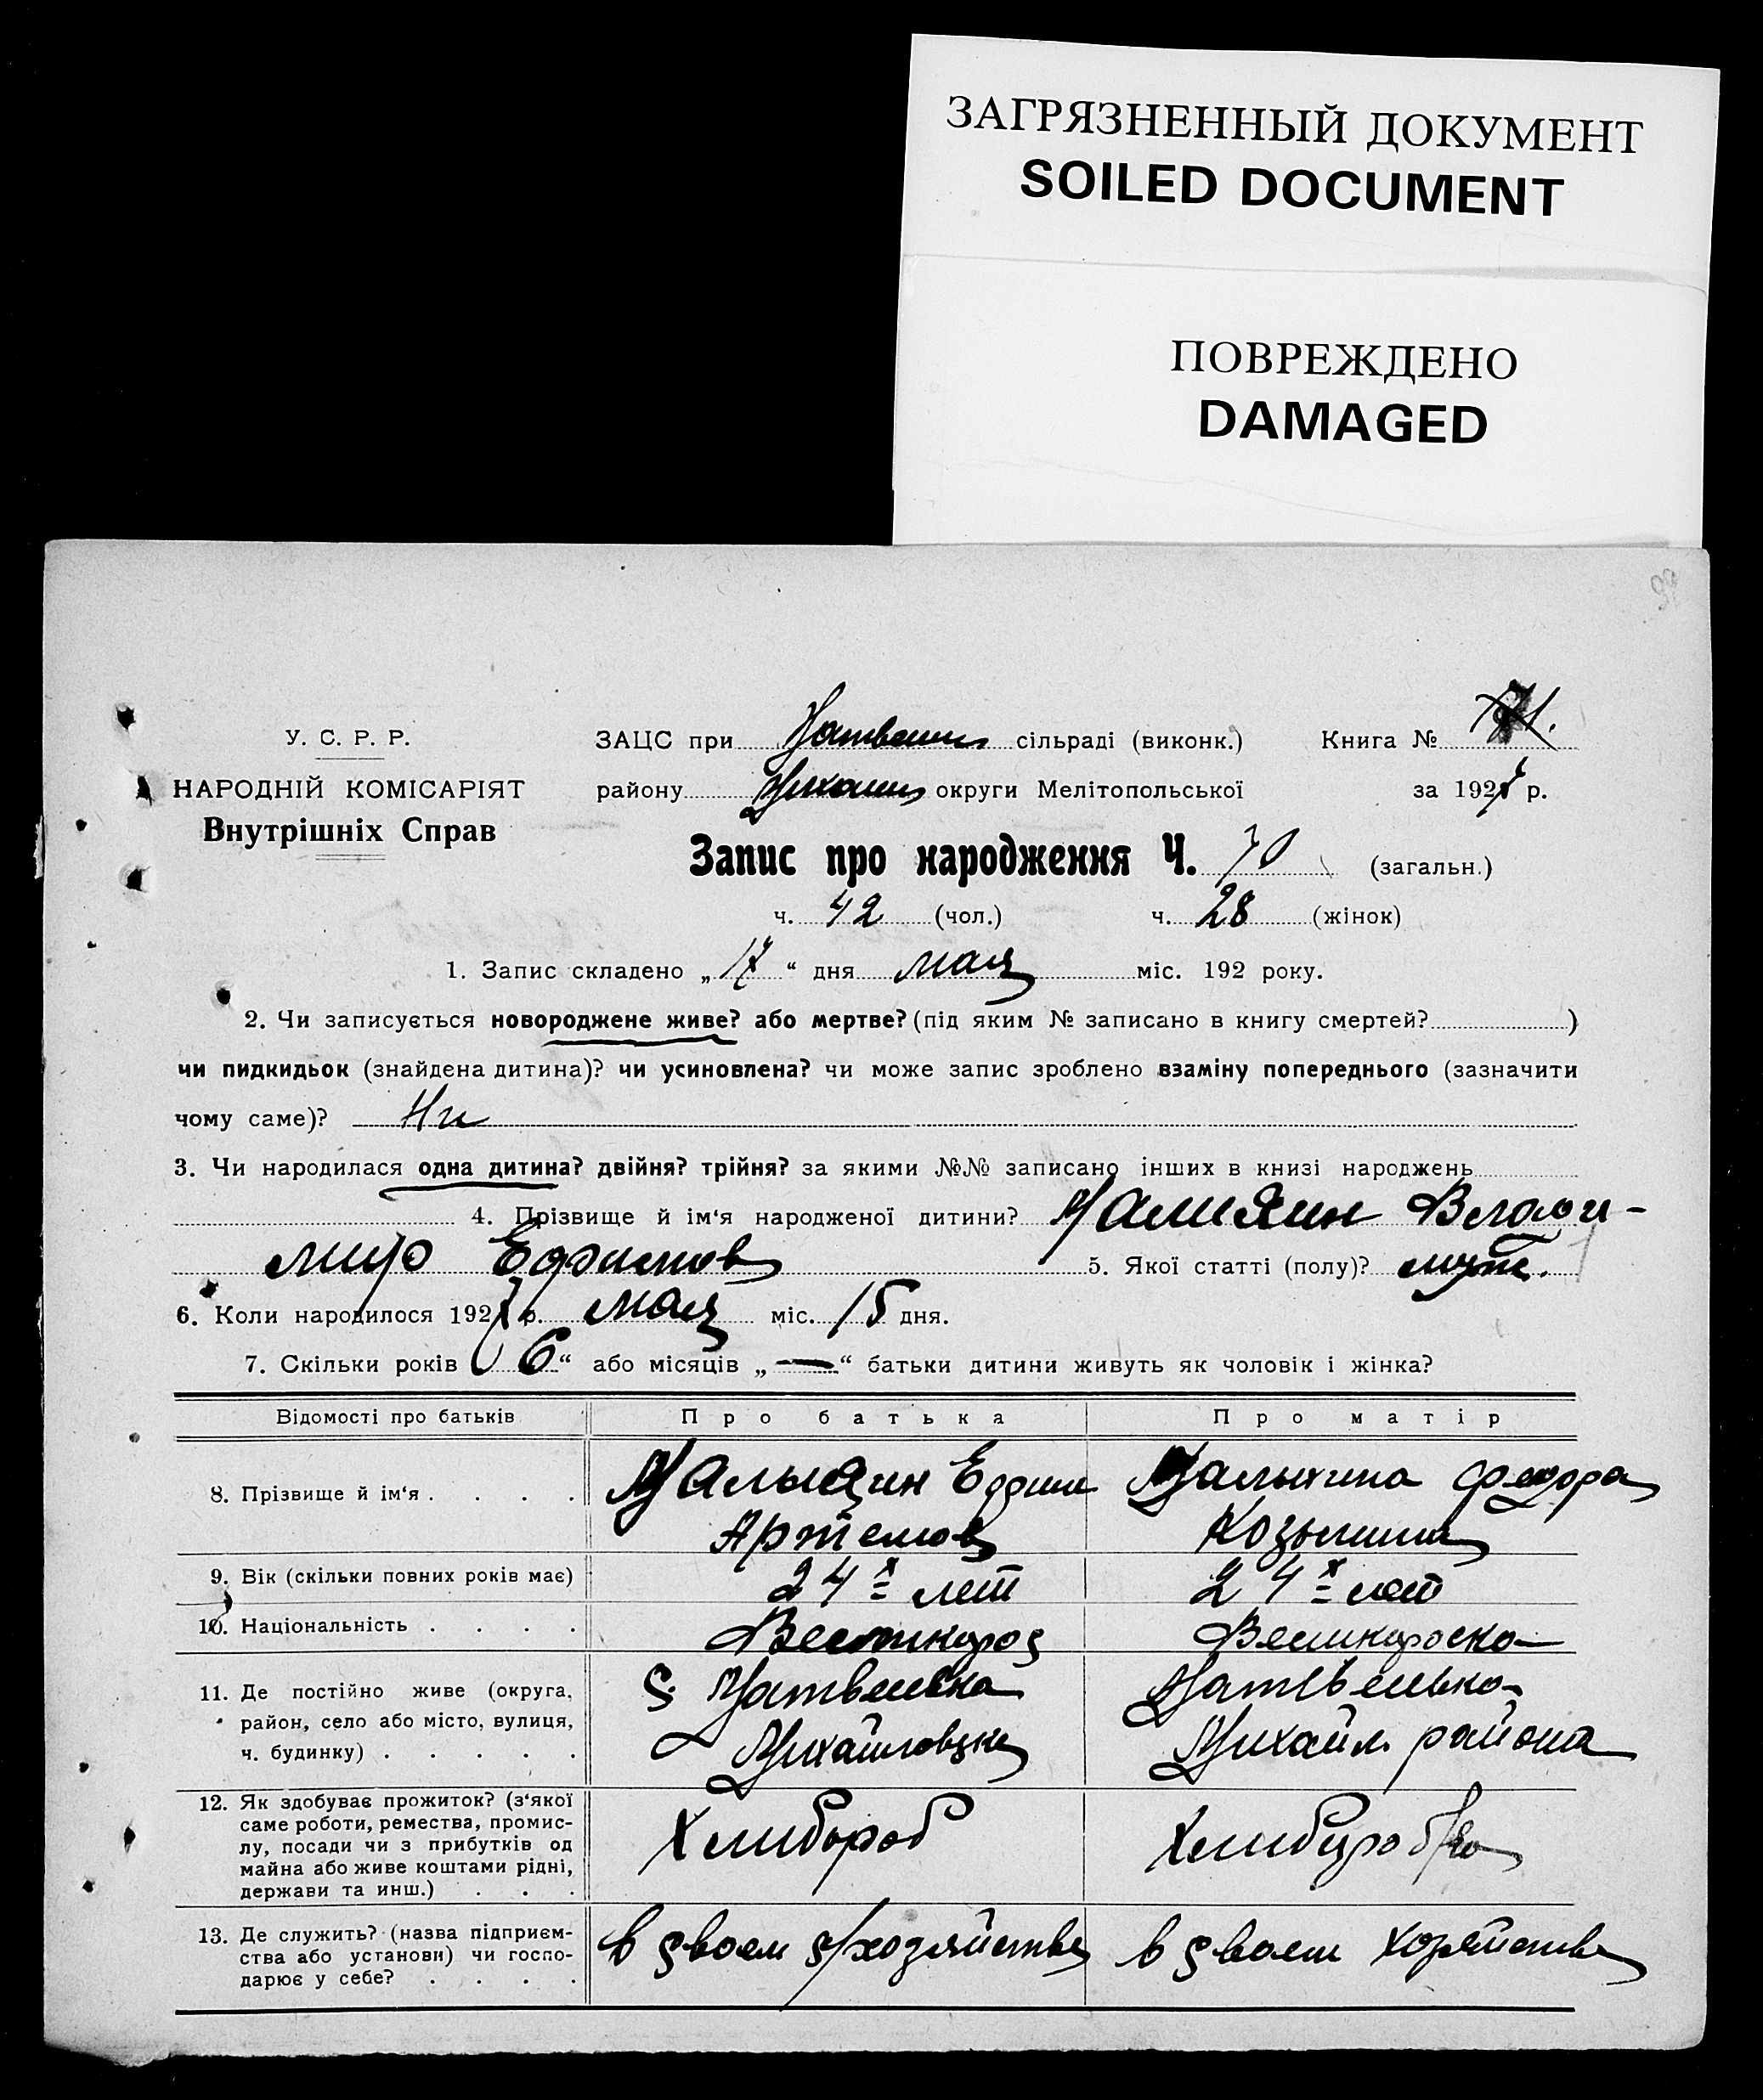 ЗАГРЯЗНЕННЫЙ ДОКУМЕНТ
SOILED DOCUMENT
ПОВРЕЖДЕНО
DAMAGED
У. С. Р. Р.
НАРОДНІЙ КОМІСАРІЯТ
Внутрішніх Справ
ЗАЦС при сільраді (виконк.) Книга №
району округи Мелітопольської за 1927 р.
Запис про народження Ч. 70 (загальн.)
ч. 42 (чол.) ч. 28 (жінок)
1. Запис складено „17“ дня мая міс. 192 року.
2. Чи записується новороджене живе? або мертве? (під яким № записано в книгу смертей? )
чи пидкидьок (знайдена дитина)? чи усиновлена? чи може запис зроблено взаміну попереднього (зазначити
чому саме)? Ни
3. Чи народилася одна дитина? двійня? трійня? за якими №№ записано інших в книзі народжень
4. Прізвище й ім‘я народженої дитини? Малихин Влади-
мир Ефимов 5. Якої статті (полу)? муж.
6. Коли народилося 1927 р. мая міс. 15 дня.
7. Скільки років „6“ або місяців „—“ батьки дитини живуть як чоловік і жінка?
Відомості про батьків Про батька Про матір
8. Прізвище й ім‘я . . . . Малыхин Ефим Малыхина Федора
Артемов Козьмина
9. Вік (скільки повних років має) 24х лет 24х лет
10. Національність . . . . Великорос Великороска
11. Де постійно живе (округа, с. Матвеевка
район, село або місто, вулиця,
ч. будинку) . . . . . Михайловки Михайл. района
12. Як здобуває прожиток? (з‘якої
саме роботи, ремества, промис-
лу, посади чи з прибутків од Хлибороб
майна або живе коштами рідні,
держави та инш.) . . .
13. Де служить? (назва підприєм-
ства або установи) чи госпо- в своем с/хозяйстве в своем хозяйстве
дарює у себе? . . . .